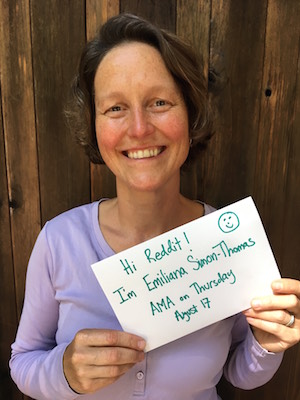 Hi Reddit!
I'm Emiliana Simon-Thomas
AMA on Thursday
August 17